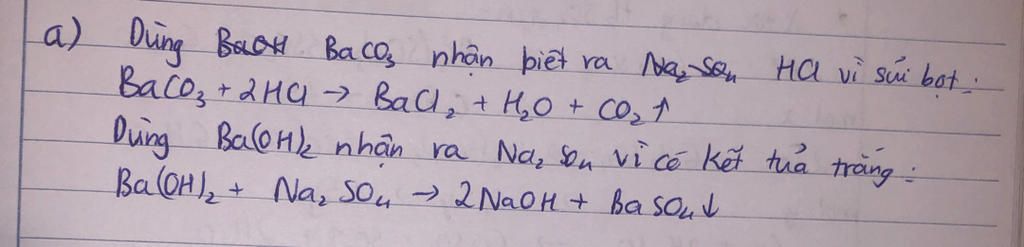 a) Dùng BaCO₃ nhận biết ra HCl vì sủi bọt:
BaCO₃ + 2HCl → BaCl₂ + H₂O + CO₂↑
Dùng Ba(OH)₂ nhận ra Na₂SO₄ vì có kết tủa trắng:
Ba(OH)₂ + Na₂SO₄ → 2NaOH + BaSO₄↓